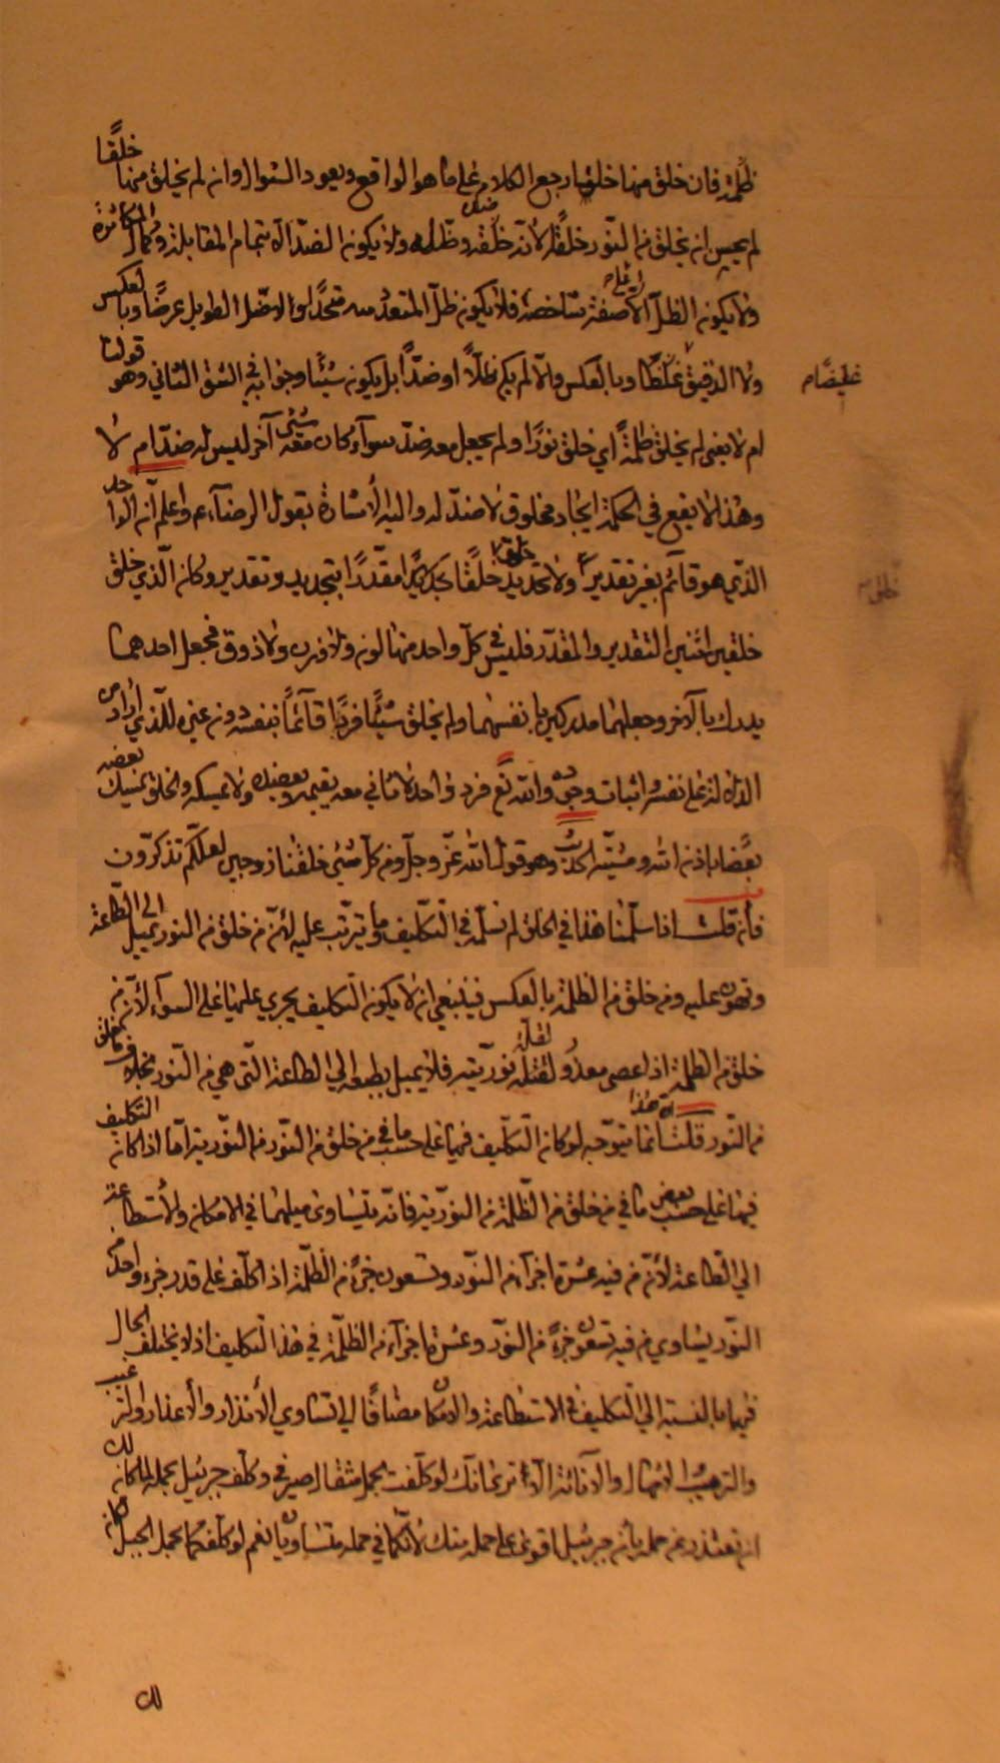 ظلمة فان خلق منها خلقا رجع الكلام على ما هو الواقع ويعود السؤال وان لم يخلق منها خلقًا
لم يحسن ان يخلق من النور خلقًا لانه خلقه وظله ضده ولا يكون الضد الا بتمام المقابلة وكمال المعاكسة
ولا يكون الظل الا على صفة شاخصه فلا يكون ظل المتعدد متحدًا ولا ظل الطويل عرضًا وبالعكس
ولا الدقيق غلظًا وبالعكس والا لم يكن ظلًا او ضدًا بل يكون شيئا وجوابه في الشق الثاني وهو قولنا
غليظا م
ام لا يعني لم يخلق ظلمة اي خلق نورًا ولم يجعل معه ضد سوآء كان معه شئ آخر ليس له ضد ام لا
وهذا لا يقع في الحكمة ايجاد مخلوق لا ضد له واليه الأشارة بقول الرضآء ع واعلم ان الواحد
الذي هو قآئم بغير تقدير ولا تحديد خلق خلقًا مقدرًا بتحديد وتقدير وكان الذي خلق
خلقين اثنين التقدير والمقدر فليس في كل واحد منهما لون ولا وزن ولا ذوق فجعل احدهما
يدرك بالآخر وجعلهما مدركين بانفسهما ولم يخلق شيئًا فردًا قآئمًا بنفسه دون غيره للذي اراد من
الدلالة على نفسه واثبات وجوده والله تع فرد واحد لا ثاني معه يقيمه ولا يعضده ولا يمسكه والخلق يمسك بعضه
بعضًا باذن الله ومشيته الحديث وهو قول الله عز وجل ومن كل شئ خلقنا زوجين لعلكم تذكرون
فان قلت اذا سلمنا هذا في الخلق لم نسلم في التكليف وما يترتب عليه لان من خلق من النور يميل الى الطاعة
وتهون عليه ومن خلق من الظلمة بالعكس فينبغي ان لا يكون التكليف يجري عليهما على السوآء لأنه من
خلق من الظلمة اذا عصى معذور لقلة نوريته فلا يميل بطبعه الى الطاعة التي هي من النور بخلاف من خلق
من النور قلت انما يتوجه هذا لو كان التكليف فيهما على حسب ما في من خلق من النور من النورية اما اذا كان التكليف
فيهما على حسب بعض ما في من خلق من الظلمة من النورية فانه يتساوى ميلهما في الامكان والأستطاعة
الى الطاعة لأنه من فيه عشرة اجزآء من النور وتسعون جزءً من الظلمة اذا كلف على قدر جزء واحد من
النور يساوي من فيه تسعون جزءً من النور وعشرة اجزآء من الظلمة في هذا التكليف اذ لا يختلف الحال
فيهما بالنسبة الى التكليف في الاستطاعة والامكان مضافًا الى تساوي الأنذار والأعذار والترغيب
والترهيب الامهال والاناة الا ترى انك لو كلفت بحمل مثقال صيرفي وكلف جبرئيل بحمله لما كان لك
ان تعتذر عن حمله بأن جبرئيل اقوى على حمله منك لأنكما في حمله متساويان نعم لو كلفكما بحمل الجبل كان
لك